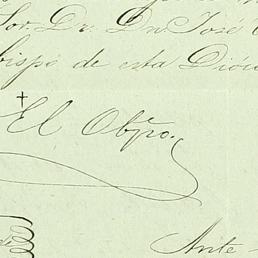 Sor. Dr. Dn. José
bispo de esta Dióc
✝
El Obpo.
Ante